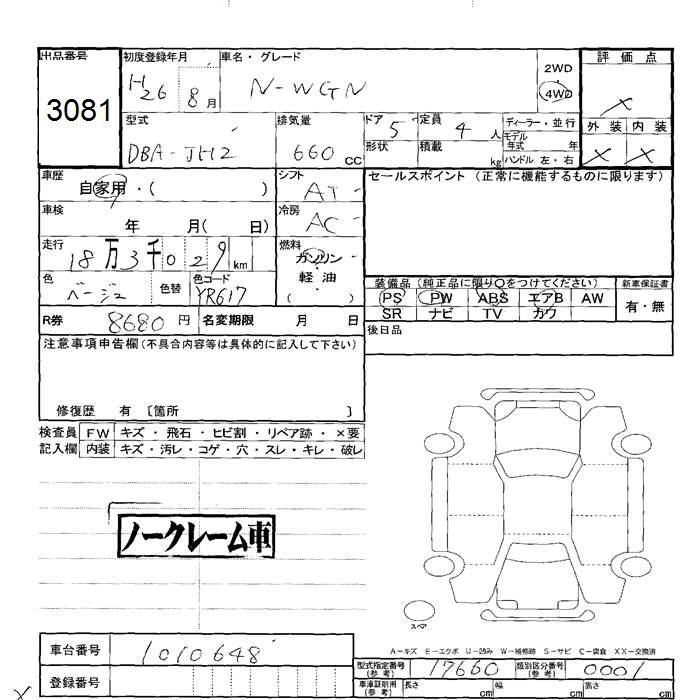 出品番号 初度登録年月 車名・グレード 2WD 評価点
3081 H26 8月 N-WGN 4WD ×
型式 排気量 ドア 5 定員 4人 ディーラー・並行 外装 内装
DBA-JH2 660 CC 形状 積載 kg モデル年式 年 × ×
ハンドル 左・右
車歴 シフト セールスポイント (正常に機能するものに限ります)
自家用・( ) AT
車検 冷房
年 月( 日) AC
走行 燃料
18万3千029 km ガソリン・軽油
色 色替 色コード ( ) 装備品 (純正品に限り○をつけてください) 新車保証書
ベージュ YR617 PS PW ABS エアB AW 有・無
SR ナビ TV カワ
R券 8680円 名変期限 月 日 後日品
注意事項申告欄(不具合内容等は具体的に記入して下さい)
修復歴 有 〔箇所 〕
検査員 FW キズ・飛石・ヒビ割・リペア跡・×要
記入欄 内装 キズ・汚レ・コゲ・穴・スレ・キレ・破レ
ノークレーム車
スペア
A-キズ E-エクボ U-凹み W-補修跡 S-サビ C-腐食 XX-交換済
車台番号 1010648 型式指定番号(参考) 17660 類別区分番号(参考) 0001
登録番号 車庫証明用(参考) 長さ cm 幅 cm 高さ cm